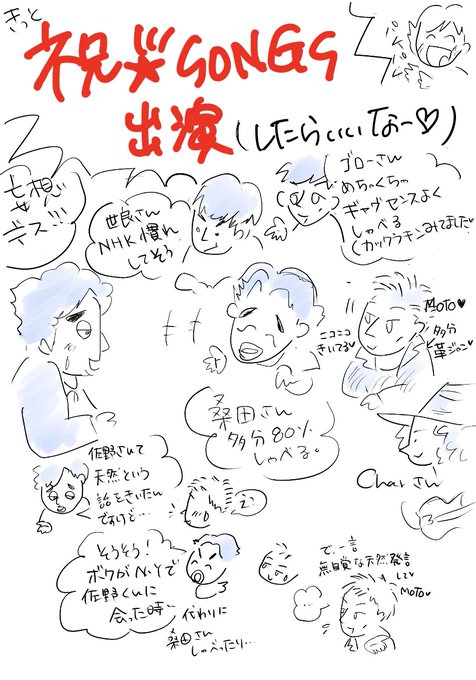 きっと
祝☆SONGS
出演(したらいいなー♡)
妄想
デス…
世良さん
NHK慣れ
してそう
ゴローさん
めちゃくちゃ
ギャグセンスよく
しゃべる
(カックラキンみてました)
ニコニコ
きいてる♥
MOTO♥
多分
革ジャン
桑田さん
多分80%
しゃべる。
Charさん
佐野さんて
天然という
話をきいたん
ですけど…
そうそう!
ボクがN.Yで
佐野くんに
会った時…
代わりに
桑田さん
しゃべったり…
で、一言
無自覚な天然発言
MOTO♥
…